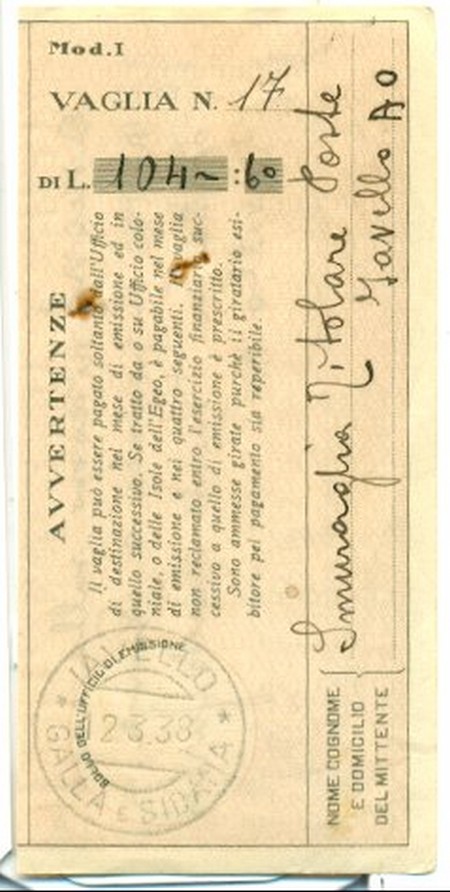 Mod. I
VAGLIA N. 17
DI L. 104~ : 60
AVVERTENZE
Il vaglia può essere pagato soltanto dall'Ufficio
di destinazione nel mese di emissione ed in
quello successivo. Se tratto da o su Ufficio colo-
niale, o delle Isole dell'Egeo, è pagabile nel mese
di emissione e nei quattro seguenti. Il vaglia
non reclamato entro l'esercizio finanziario suc-
cessivo a quello di emissione è prescritto.
Sono ammesse girate purchè il giratario esi-
bitore pel pagamento sia reperibile.
BOLLO DELL'UFFICIO DI EMISSIONE
JAVELLO
2.3.38
* GALLA E SIDAMA *
NOME COGNOME
E DOMICILIO
DEL MITTENTE
Smuraglia Titolare Poste
Javello AO